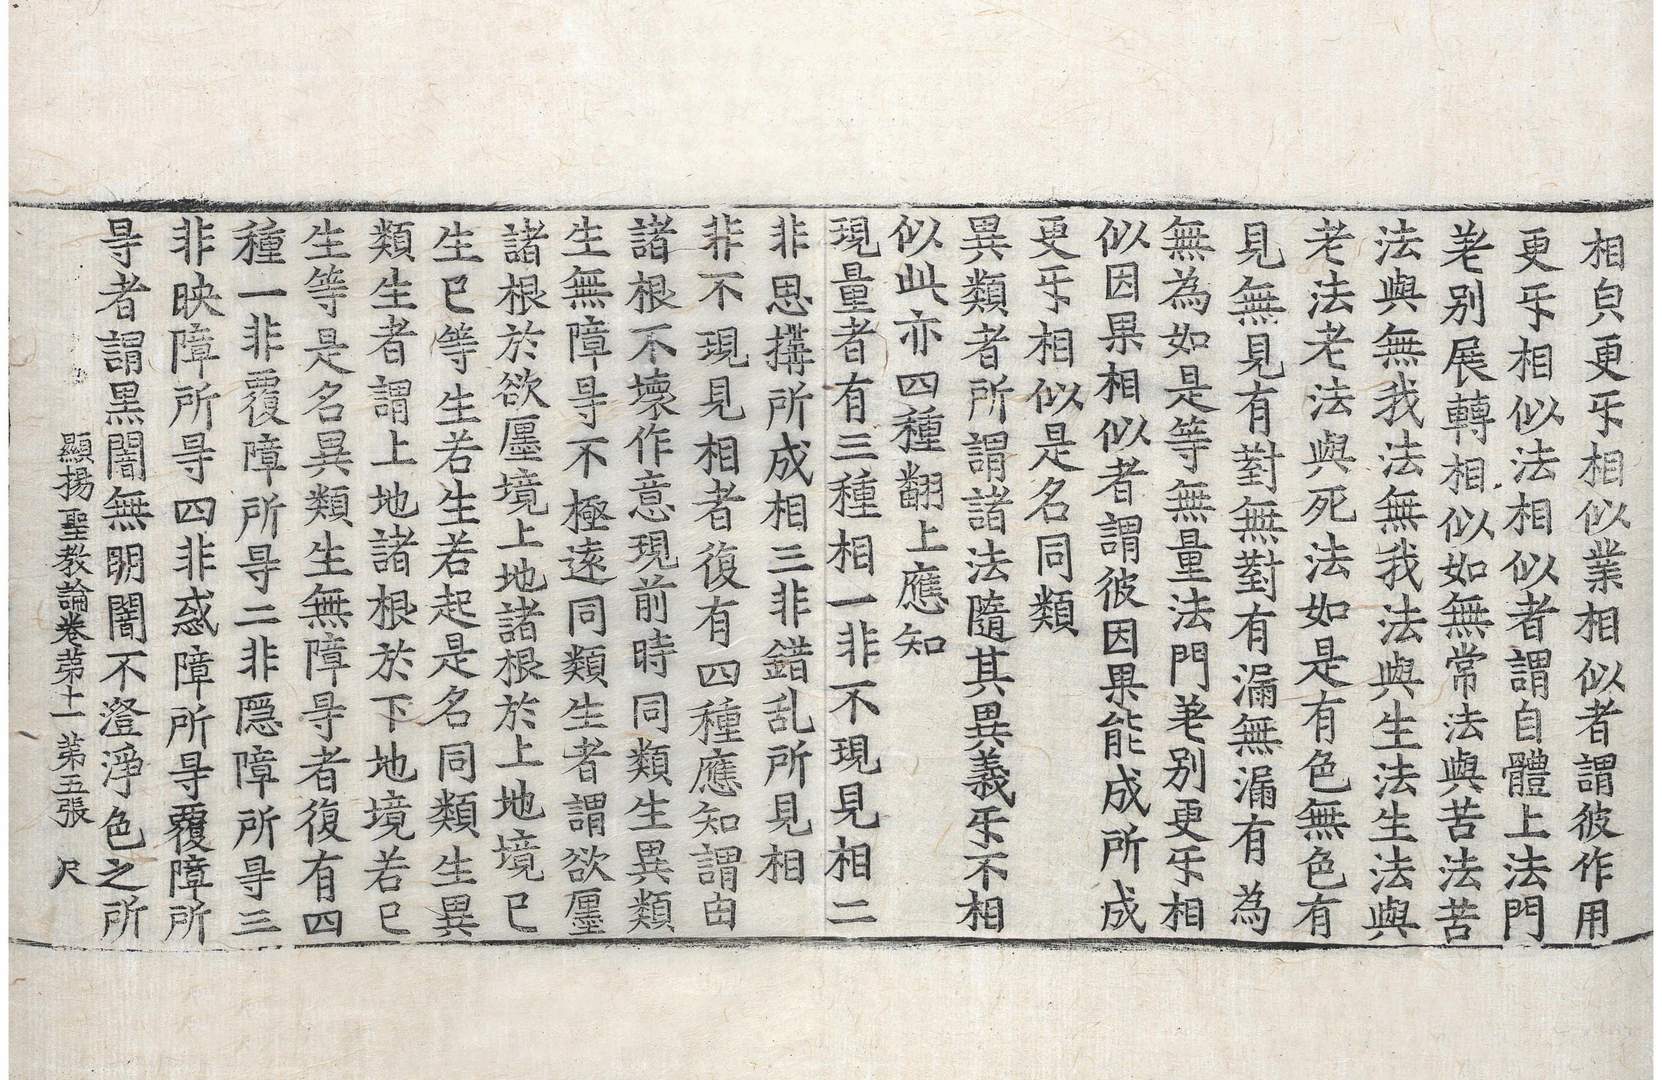 相皃更㸦相似業相似者謂彼作用
更㸦相似法相似者謂自體上法門
差别展轉相似如無常法與苦法苦
法與無我法無我法與生法生法與
老法老法與死法如是有色無色有
見無見有對無對有漏無漏有為
無為如是等無量法門差别更㸦相
似因果相似者謂彼因果能成所成
更㸦相似是名同類
異類者所謂諸法隨其異義㸦不相
似此亦四種翻上應知
現量者有三種相一非不現見相二
非思搆所成相三非錯乱所見相
非不現見相者復有四種應知謂由
諸根不壞作意現前時同類生異類
生無障㝵不極遠同類生者謂欲㕓
諸根於欲㕓境上地諸根於上地境已
生已等生若生若起是名同類生異
類生者謂上地諸根於下地境若已
生等是名異類生無障㝵者復有四
種一非覆障所㝵二非隱障所㝵三
非映障所㝵四非惑障所㝵覆障所
㝵者謂黒闇無明闇不澄淨色之所
顯揚聖教論卷苐十一 苐五張 尺